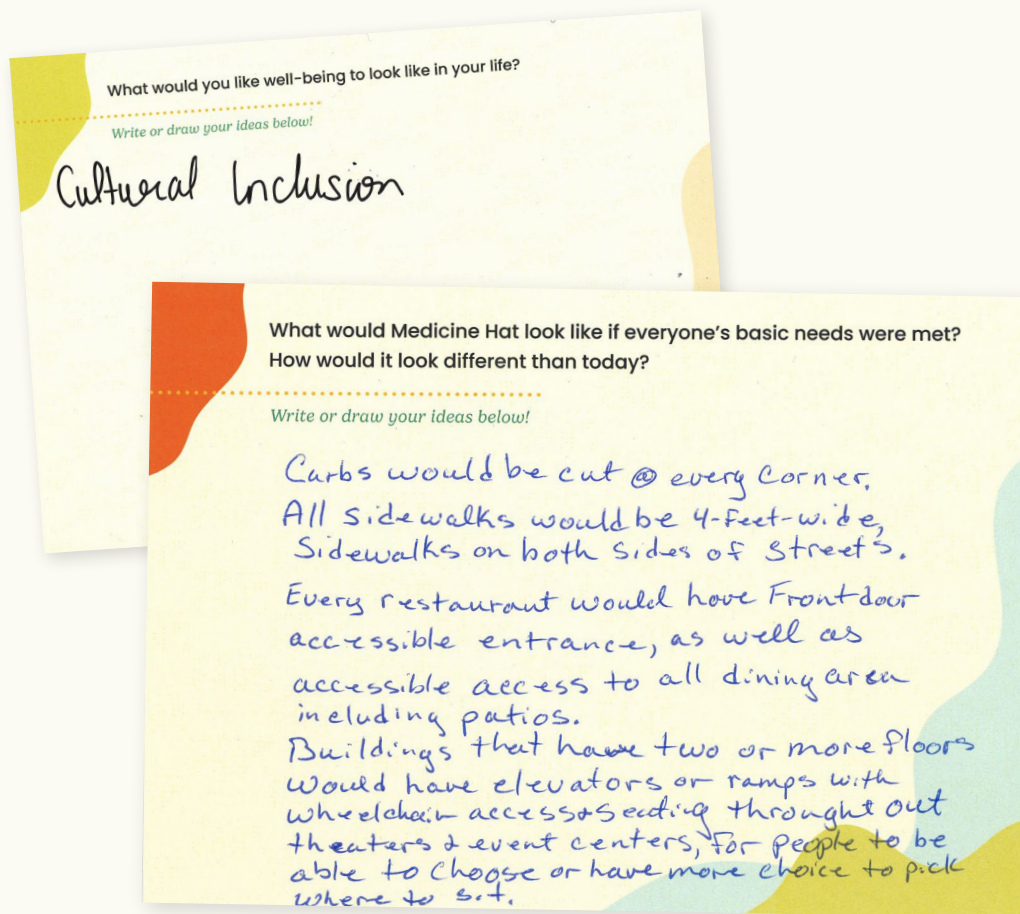 What would you like well-being to look like in your life?
Write or draw your ideas below!
Cultural Inclusion
What would Medicine Hat look like if everyone's basic needs were met?
How would it look different than today?
Write or draw your ideas below!
Carbs would be cut @ every Corner.
All sidewalks would be 4-feet-wide,
Sidewalks on both sides of Street's.
Every restaurant would have Front door
accessible entrance, as well as
accessible access to all dining area
including patios.
Buildings that have two or more floors
would have elevators or ramps with
wheelchair access & Seating throught out
theaters & event centers, for people to be
able to Choose or have more choice to pick
where to sit.